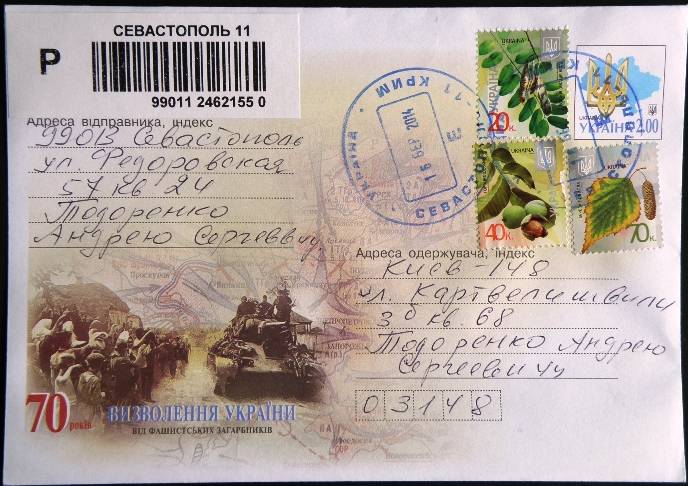 СЕВАСТОПОЛЬ 11
Р
99011 2462155 0
Адреса відправника, індекс
99013 Севастополь
ул. Федоровская
57 кв. 24
Тодоренко
Андрею Сергеевичу
УКРАЇНА
20к.
УКРАЇНА 2.00
40к.
70к.
УКРАЇНА • СЕВАСТОПОЛЬ-11 КРИМ •
Адреса одержувача, індекс
Киев-148
ул. Картвелишвили
3а кв. 68
Тодоренко Андрею
Сергеевичу
03148
70 років
ВИЗВОЛЕННЯ УКРАЇНИ
ВІД ФАШИСТСЬКИХ ЗАГАРБНИКІВ